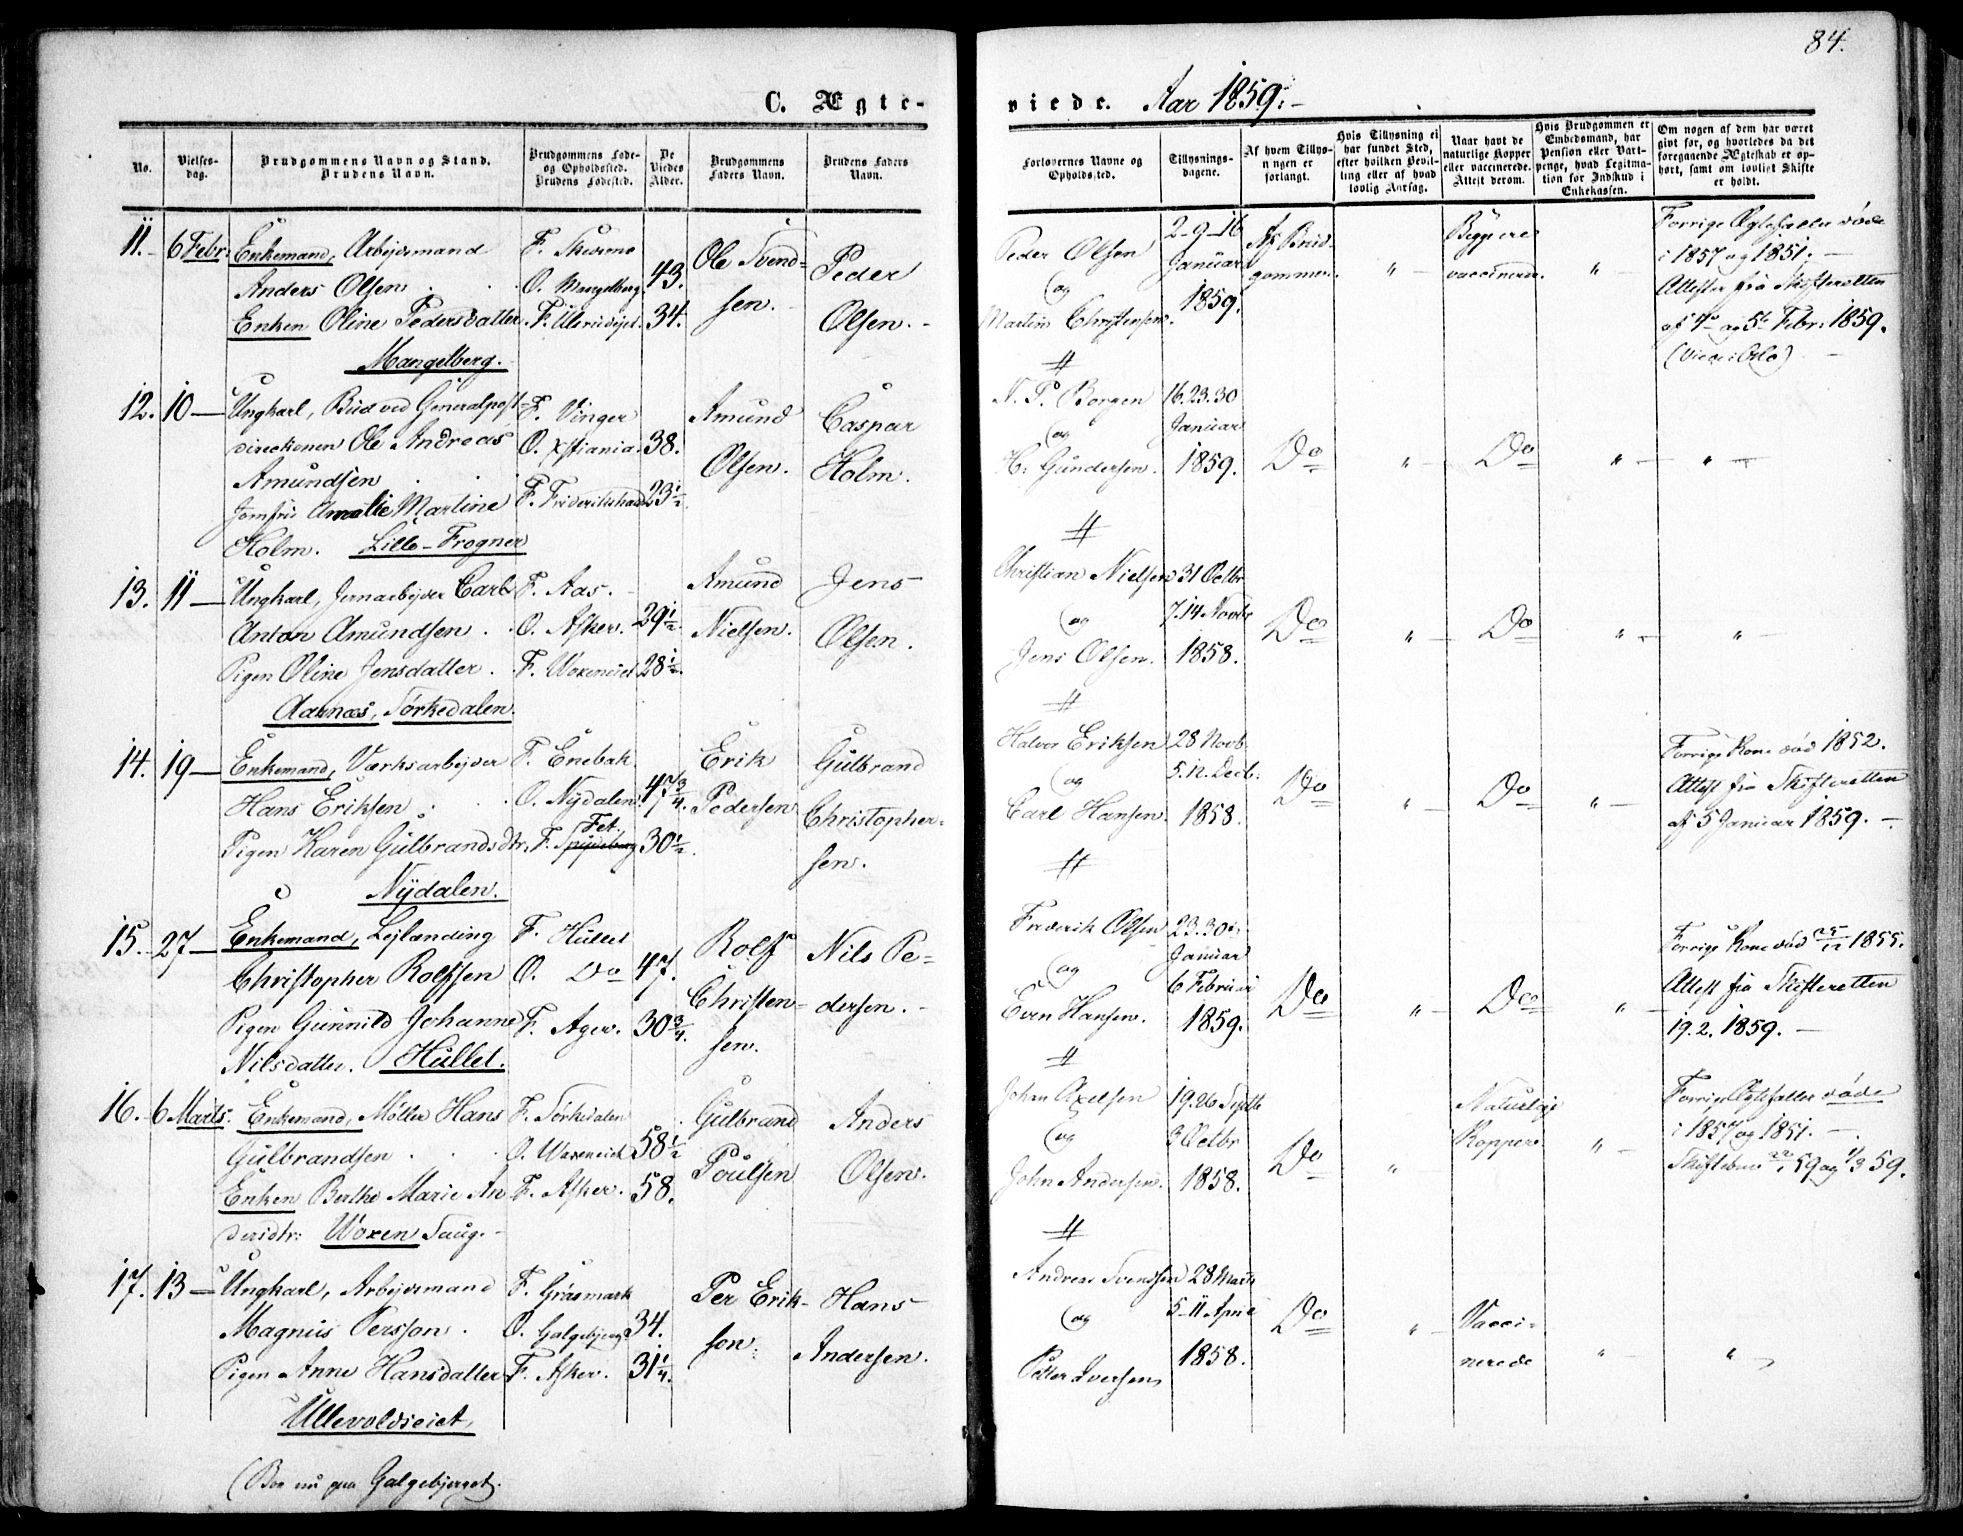 84.
C. Ægte-
viede. Aar 1859.
No.
Vielses-
dag.
Brudgommens Navn og Stand.
Brudens Navn.
Brudgommens Føde-
og Opholdssted.
Brudens Fødested.
De
Viedes
Alder.
Brudgommens
Faders Navn.
Brudens Faders
Navn.
Forlovernes Navne og
Opholdssted.
Tillysnings-
dagene.
Af hvem Tillys-
ningen er
forlangt.
Hvis Tillysning ei
har fundet Sted,
efter hvilken Bevil-
ling eller af hvad
lovlig Aarsag.
Naar havt de
naturlige Kopper
eller vaccinerede.
Attest derom.
Hvis Brudgommen er
Embedsmand, har
Pension eller Vart-
penge, hvad Legitma-
tion for Indskud i
Enkekassen.
Om nogen af dem har været
givt før, og hvorledes da det
foregaaende Ægteskab er op-
hørt, samt om lovligt Skifte
er holdt.
11. 6 Febr:
Enkemand, Arbejdsmand
Anders Olsen
Enken Oline Pedersdatter
Mangelberg.
O. Mangelberg
43.
34.
Ole Svend-
sen.
Peder
Olsen.
Peder Olsen
og
Martin Christensen.
2-9-16
Januar
1859.
Af Brud-
gommen.
Begge
vaccinerede.
Forrige Ægtefæller døde
i 1857 og 1851.
Attester fra Skifteretten
af 4 og 5 Febr: 1859.
(Viede i Oslo)
12. 10 —
Ungkarl, Bud ved Generalpost-
direktionen Ole Andreas
Amundsen
Jomfru Amalie Martine
Holm. Lille-Frogner
F. Vinger
O. Xstiania.
F. Friderikshald
38.
23½
Amund
Olsen.
Caspar
Holm.
N. P. Borgen
og
H. Gundersen.
16.23.30
Januar
1859.
Do
Do
13. 11 —
Ungkarl, Jernarbejder Carl
Anton Amundsen
Pigen Oline Jensdatter
Aamæs, Sørkedalen.
F. Aas.
O. Asker.
F. Woxeneiet
29½
28½.
Amund
Nielsen.
Jens
Olsen.
Christian Nielsen
og
Jens Olsen.
31 Octbr
7.14 Novbr
1858.
Do
Do
14. 19 —
Enkemand, Værksarbejder
Hans Eriksen
Pigen Karen Gulbrandsdtr.
Nydalen.
F. Enebak
O. Nydalen
F. Fet.
47¾.
30½.
Erik
Pedersen
Gulbrand
Christopher-
sen.
Halvor Eriksen
og
Carl Hansen.
28 Novb
5.12. Decb.
1858.
Do
Do
Forrige Kone død 1852.
Attest fra Skifteretten
af 5 Januar 1859.
15. 27 —
Enkemand, Lejlænding
Christopher Rolfsen
Pigen Gunnild Johanne
Nilsdatter. Hullet.
F. Hullet
O. Do
F. Ager.
47.
30¾.
Rolf
Christen-
sen.
Nils Pe-
dersen.
Frederik Olsen
og
Even Hansen.
23.30
Januar
6 Februar
1859.
Do
Do
Forrige Kone død 1855.
Attest fra Skifteretten
19.2.1859.
16. 6 Marts.
Enkemand, Møller Hans
Gulbrandsen
Enken Berthe Marie An
dersdtr: Woxen Saug.
F. Sørkedalen
O. Woxeneiet
F. Asker.
58½
58.
Gulbrand
Poulsen
Anders
Olsen.
Johan Axelsen
og
John Andersen.
19.26 Septbr
3 Octbr
1858.
Do
Naturlige
Kopper
Forrige Ægtefæller døde
i 1857 og 1851.
17. 13 —
Ungkarl, Arbejdsmand
Magnus Persson.
Pigen Anne Hansdatter
Ullevoldseiet.
(Boe nu paa Galgebjerget.
F. Gräsmark
O. Galgebjerget
F. Asker.
34.
31¼.
Per Erik-
son.
Hans
Andersen.
Andreas Svendsen
og
Petter Iversen
28 Marts
5-11 April
1858.
Do
Vacci-
nerede